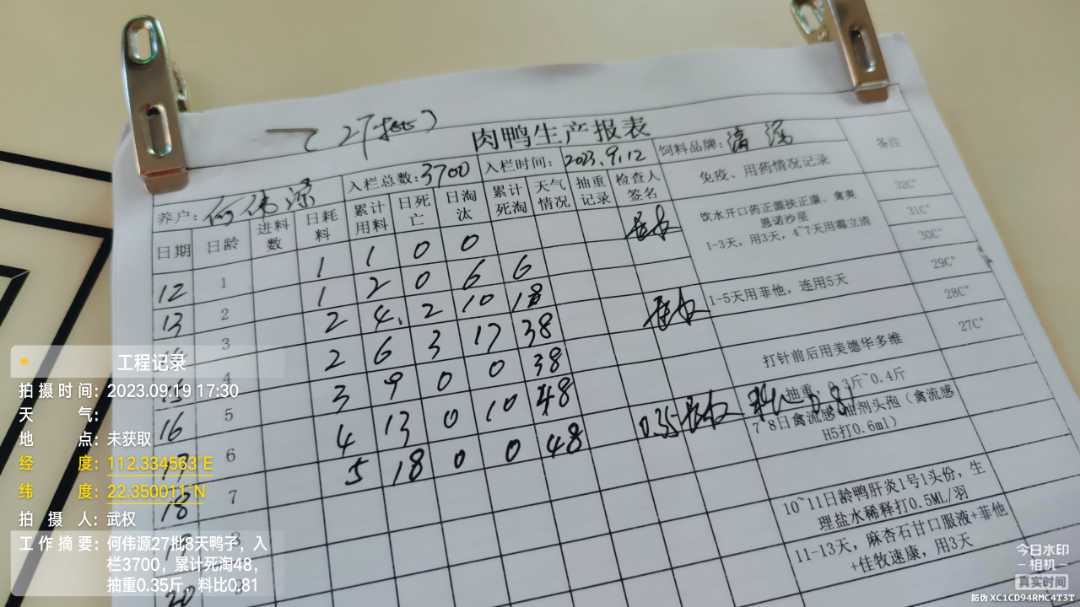 27批
肉鸭生产报表
养户: 何伟源 入栏总数: 3700 入栏时间: 2023.9.12 饲料品牌:
日期 日龄 进料数 日耗料 累计用料 日死亡 日淘汰 累计死淘 天气情况 抽重记录 检查人签名 免疫、用药情况记录 备注
12 1 1 1 0 0
13 2 1 2 0 6 6
3 2 4 2 10 18
4 2 6 3 17 38
16 5 3 9 0 0 38
6 4 13 0 10 48
18 7 5 18 0 0 48
20
0.35
饮水开口药正露扶正康，禽爽
恩诺沙星
1-3天，用3天，4~7天用霉立清
1-5天用菲他，连用5天
打针前后用美德华多维
抽重，0.3斤~0.4斤
7~8日禽流感 剂头孢（禽流感
H5打0.6ml）
10~11日龄鸭肝炎1号1头份，生
理盐水稀释打0.5ML/羽
11-13天，麻杏石甘口服液+菲他
+佳牧速康，用3天
32C°
31C°
30C°
29C°
28C°
27C°
工程记录
拍摄时间: 2023.09.19 17:30
天气:
地点: 未获取
经度: 112.334563°E
纬度: 22.350011°N
拍摄人: 武权
工作摘要: 何伟源27批8天鸭子，入
栏3700，累计死淘48，
抽重0.35斤，料比0.81
今日水印
相机
真实时间
防伪 XC1CD94RMC4T3T